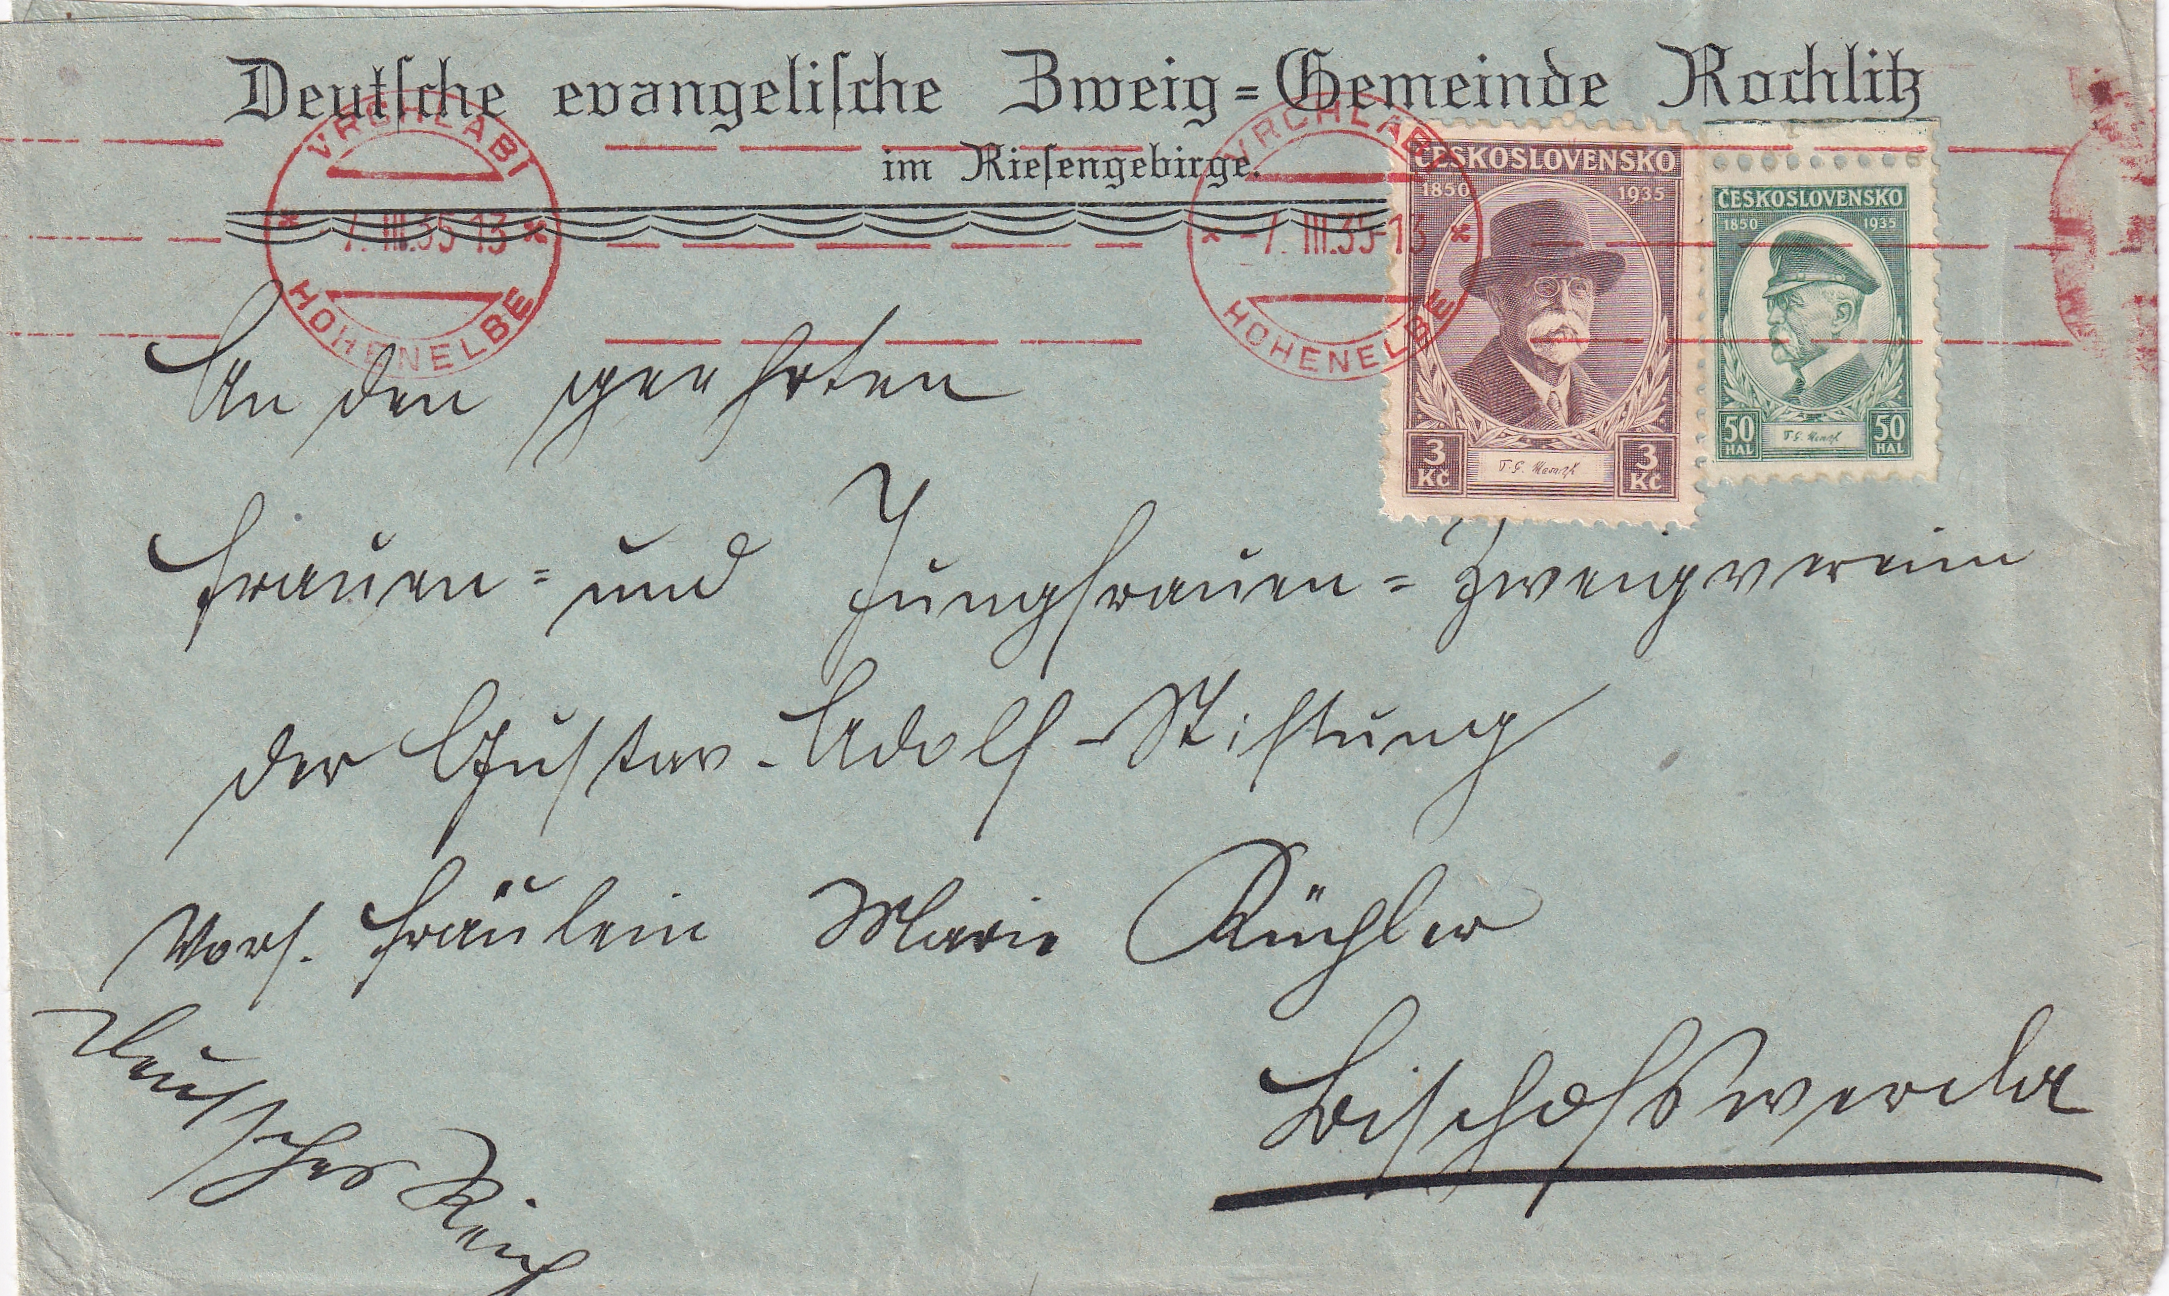 Deutsche evangelische Zweig=Gemeinde Rochlitz
im Riesengebirge.
VRCHLABÍ
-7.III.35-13
HOHENELBE
VRCHLABÍ
-7.III.35-13
HOHENELBE
ČESKOSLOVENSKO
1850 1935
3 Kč
T. G. Masaryk
3 Kč
ČESKOSLOVENSKO
1850 1935
50 HAL
T. G. Masaryk
50 HAL
An den geehrten
Frauen= und Jungfrauen=Zweigverein
der Gustav-Adolf-Stiftung
Vors. Fräulein Marie Küchler
Bischofswerda
Deutsches Reich